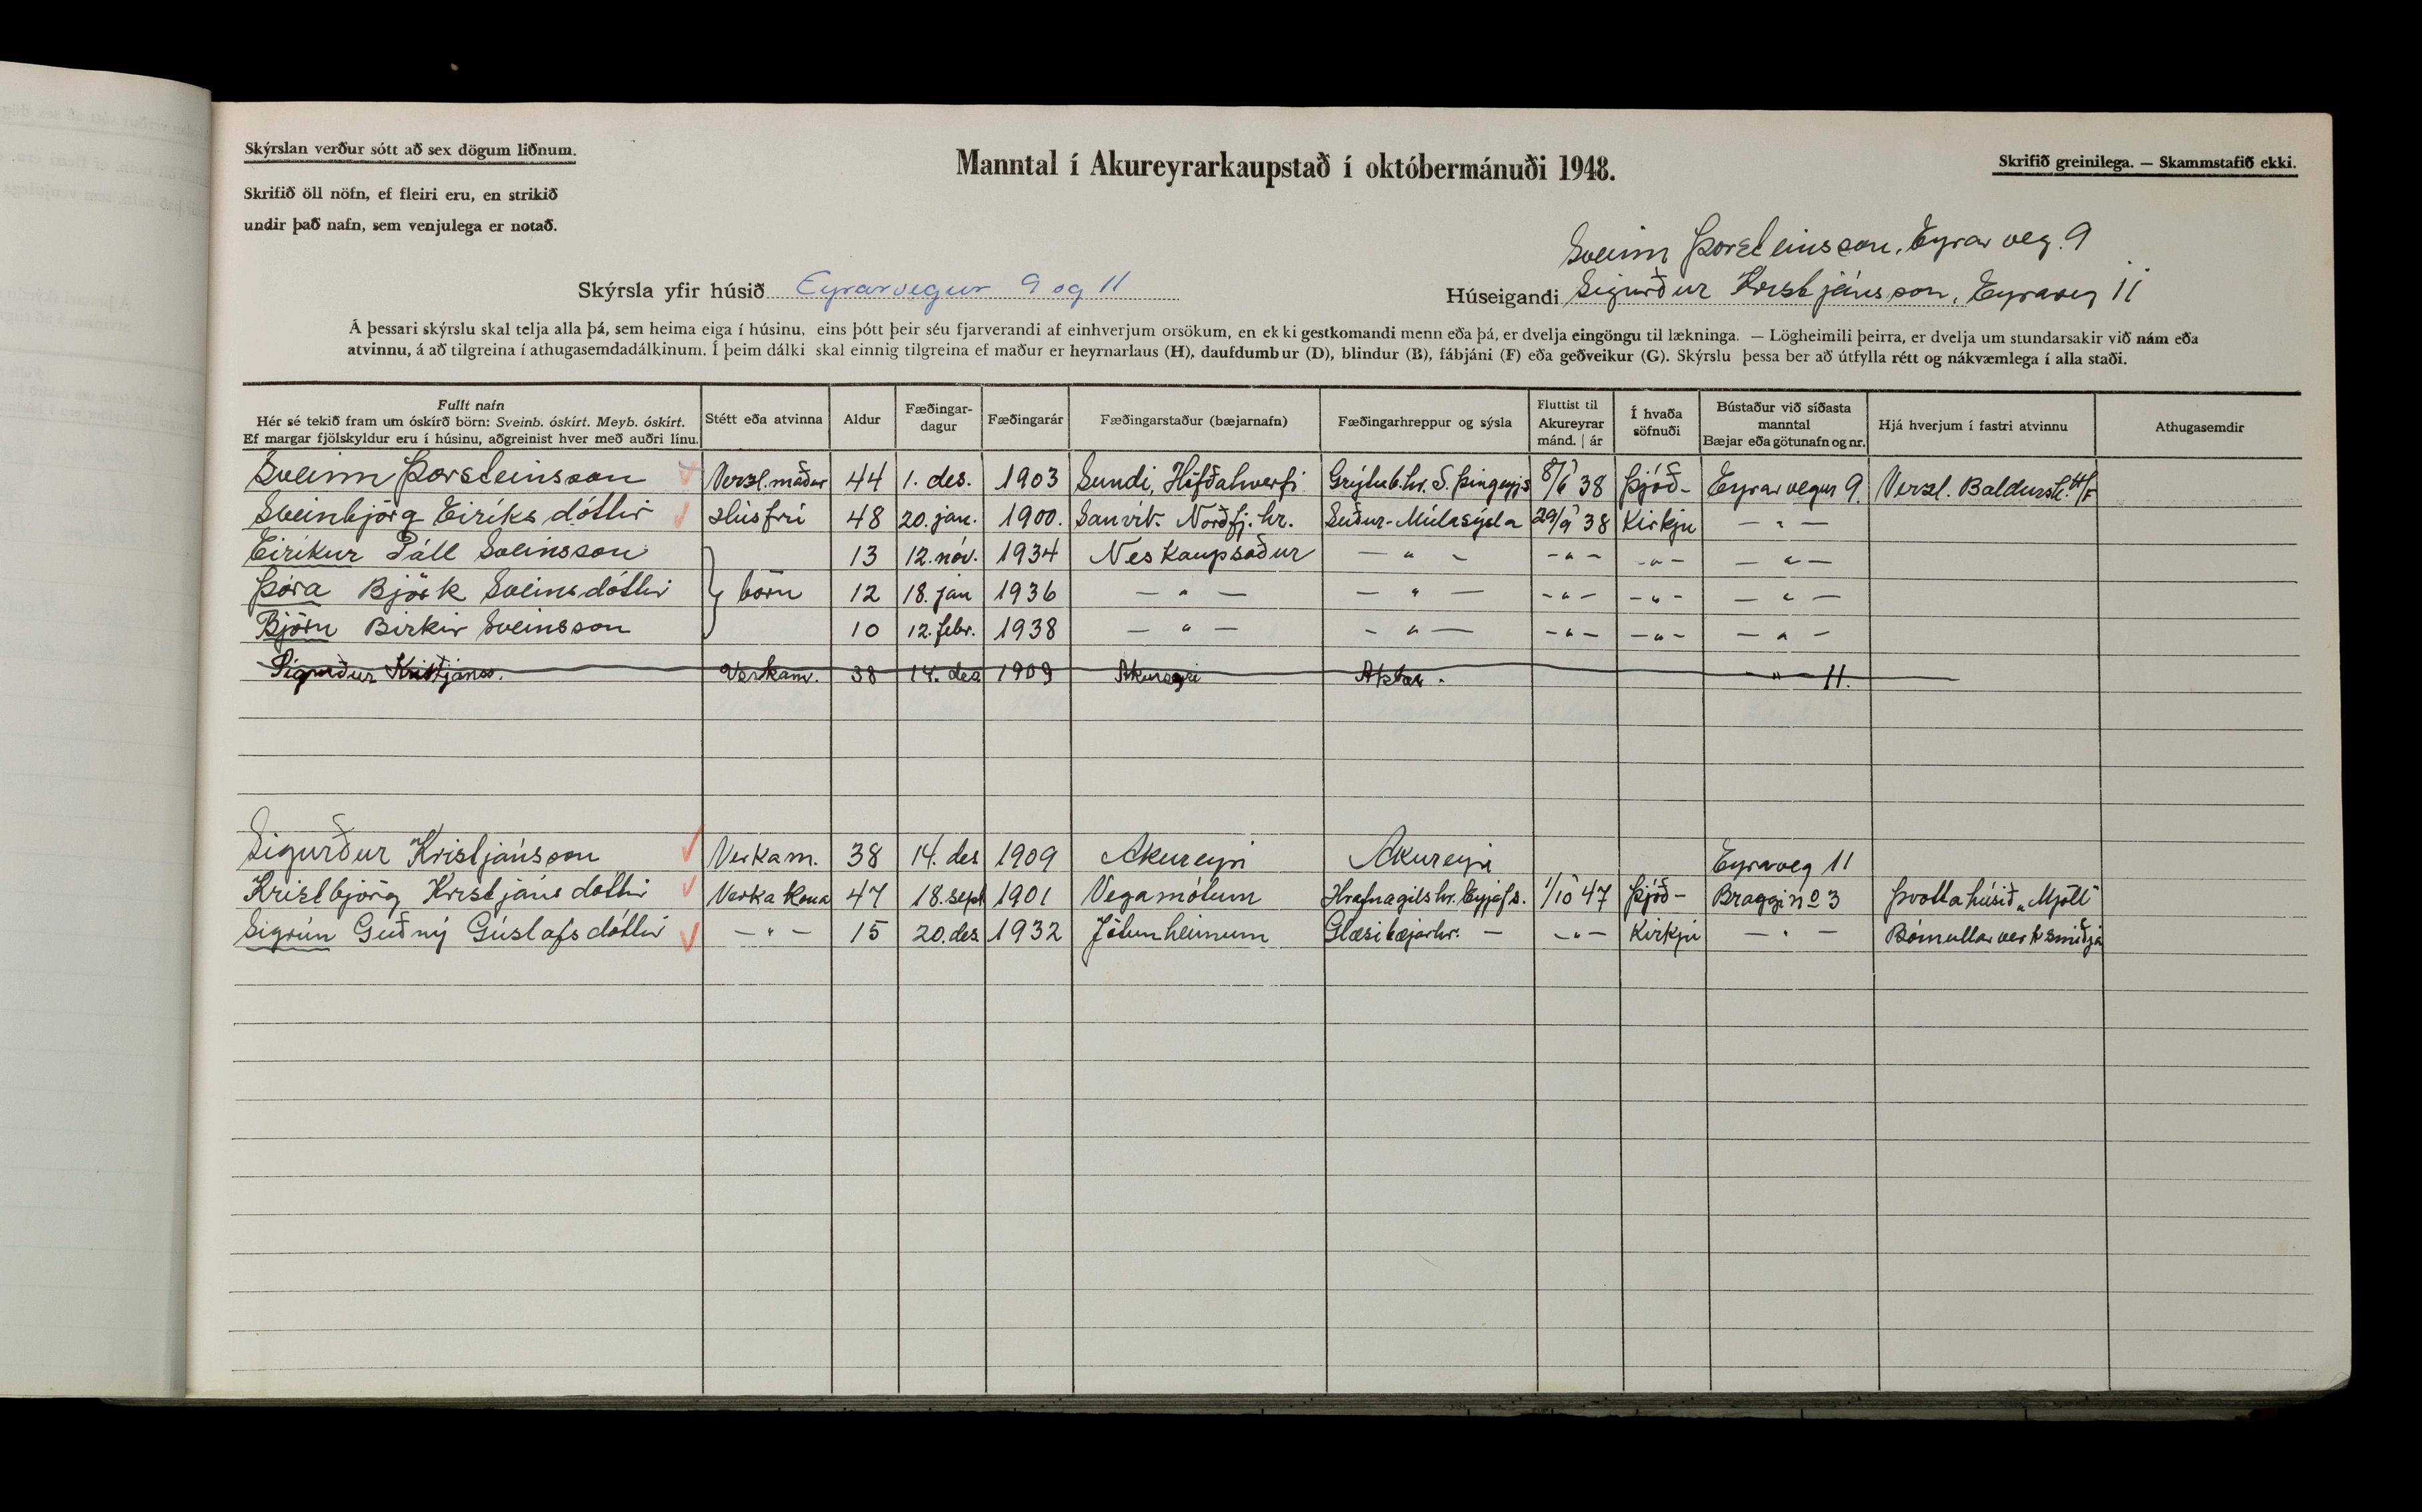 Skýrslan verður sótt að sex dögum liðnum.
Skrifið öll nöfn, ef fleiri eru, en strikið
undir það nafn, sem venjulega er notað.
Manntal í Akureyrarkaupstað í októbermánuði 1948.
Skrifið greinilega. — Skammstafið ekki.
Skýrsla yfir húsið Eyrarvegur 9 og 11
Sveinn Þorsteinsson, Eyrarveg. 9
Húseigandi Sigurður Kristjánsson, Eyraveg 11
Á þessari skýrslu skal telja alla þá, sem heima eiga í húsinu, eins þótt þeir séu fjarverandi af einhverjum orsökum, en ekki gestkomandi menn eða þá, er dvelja eingöngu til lækninga. — Lögheimili þeirra, er dvelja um stundarsakir við nám eða
atvinnu, á að tilgreina í athugasemdadálkinum. Í þeim dálki skal einnig tilgreina ef maður er heyrnarlaus (H), daufdumbur (D), blindur (B), fábjáni (F) eða geðveikur (G). Skýrslu þessa ber að útfylla rétt og nákvæmlega í alla staði.
Fullt nafn
Hér sé tekið fram um óskírð börn: Sveinb. óskírt. Meyb. óskírt.
Ef margar fjölskyldur eru í húsinu, aðgreinist hver með auðri línu.
Stétt eða atvinna
Aldur
Fæðingar-
dagur
Fæðingarár
Fæðingarstaður (bæjarnafn)
Fæðingarhreppur og sýsla
Fluttist til
Akureyrar
mánd. | ár
Í hvaða
söfnuði
Bústaður við síðasta
manntal
Bæjar eða götunafn og nr.
Hjá hverjum í fastri atvinnu
Athugasemdir
Sveinn Þorsteinsson Verzl.maður 44 1. des. 1903 Sundi, Höfðahverfi Grýtub.hr. S. Þingeyjs 8/6 38 Þjóð- Eyrarvegur 9. Verzl. Baldursh. H/F
Sveinbjörg Eiríksdóttir Húsfrú 48 20. jan. 1900. Sanvík Norðfj.hr. Suður-Múlasýsla 29/9 38 Kirkju — " —
Eiríkur Páll Sveinsson 13 12. nóv. 1934 Neskaupsaður — " — - " - - " - — " —
Þóra Björk Sveinsdóttir börn 12 18. jan 1936 — " — — " — - " - - " - — " —
Björn Birkir Sveinsson 10 12. febr. 1938 — " — - " — - " - — " - — " -
Sigurður Kristjánss. Verkam. 38 14. des 1909 Akureyri " — 11.
Sigurður Kristjánsson Verkam. 38 14. des 1909 Akureyri Akureyri Eyraveg 11
Kristbjörg Kristjánsdóttir Verkakona 47 18. sept 1901 Vegamótum Hrafnagilshr. Eyjafs. 1/10 47 Þjóð- Braggi nº 3 Þvottahúsið „Mjöll"
Sigrún Guðný Gústafsdóttir — " — 15 20. des. 1932 Jötunheimum Glæsibæjarhr. — - " - Kirkju — " — Bómullarverksmiðja